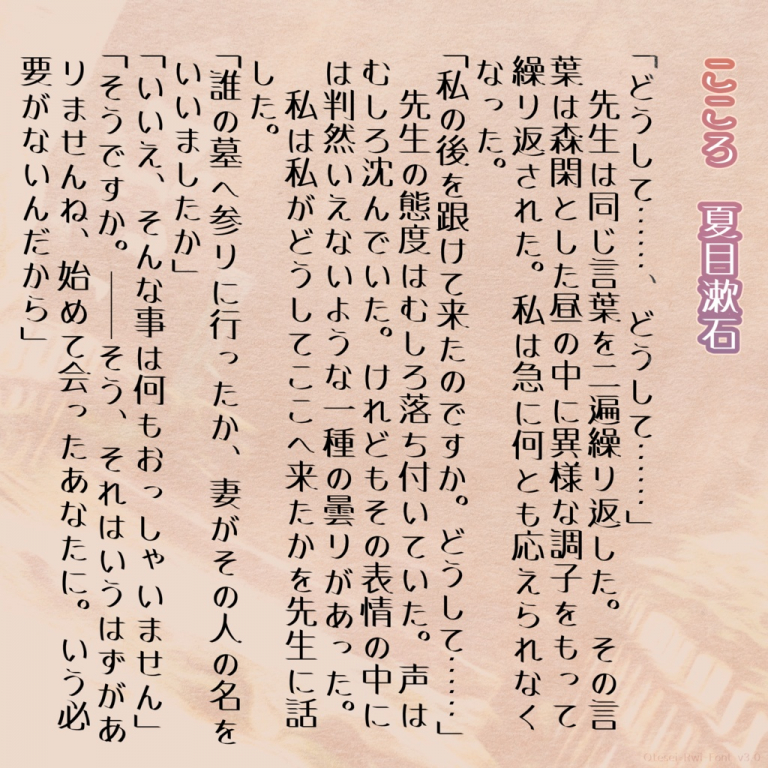 こころ　夏目漱石
「どうして……、どうして……」
　先生は同じ言葉を二遍繰り返した。その言
葉は森閑とした昼の中に異様な調子をもって
繰り返された。私は急に何とも応えられなく
なった。
「私の後を跟けて来たのですか。どうして……」
　先生の態度はむしろ落ち付いていた。声は
むしろ沈んでいた。けれどもその表情の中に
は判然いえないような一種の曇りがあった。
　私は私がどうしてここへ来たかを先生に話
した。
「誰の墓へ参りに行ったか、妻がその人の名を
いいましたか」
「いいえ、そんな事は何もおっしゃいません」
「そうですか。――そう、それはいうはずがあ
りませんね、始めて会ったあなたに。いう必
要がないんだから」